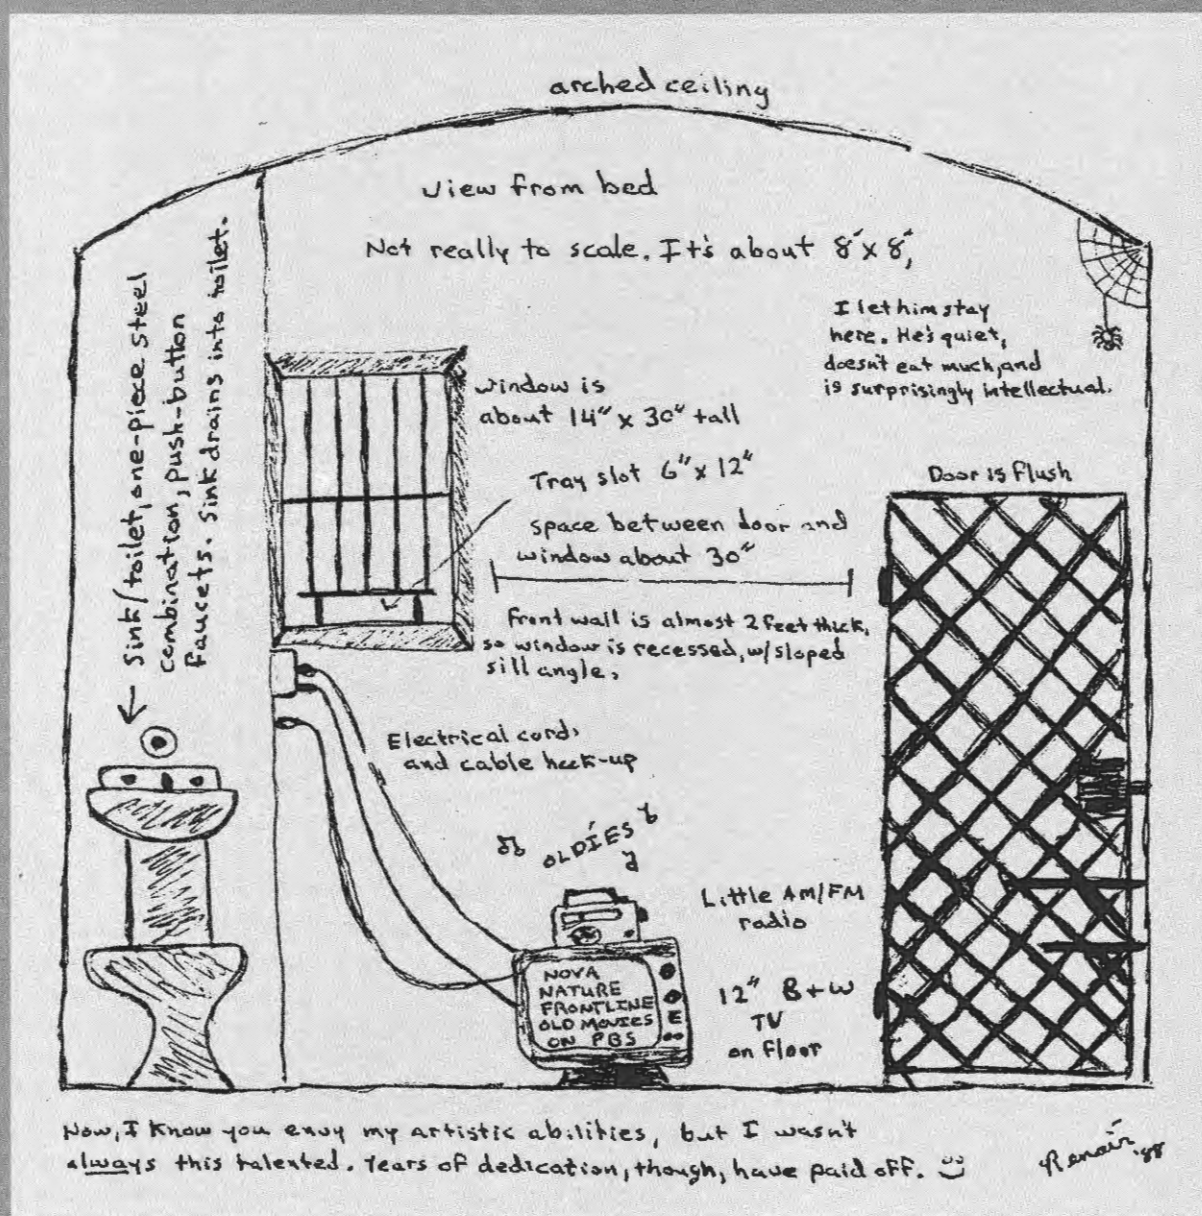 arched ceiling
View from bed
Not really to scale. It's about 8' x 8',
← Sink/toilet, one-piece steel
combination, push-button
faucets. Sink drains into toilet.
I let him stay
here. He's quiet,
doesn't eat much, and
is surprisingly intellectual.
window is
about 14" x 30" tall
Tray slot 6" x 12"
space between door and
window about 30"
Door is flush
Front wall is almost 2 feet thick,
so window is recessed, w/sloped
sill angle.
Electrical cord,
and cable hook-up
OLDIES
Little AM/FM
radio
NOVA
NATURE
FRONTLINE
OLD MOVIES
ON PBS
12" B+W
TV
on floor
Now, I know you envy my artistic abilities, but I wasn't
always this talented. Years of dedication, though, have paid off.
Renoir '88